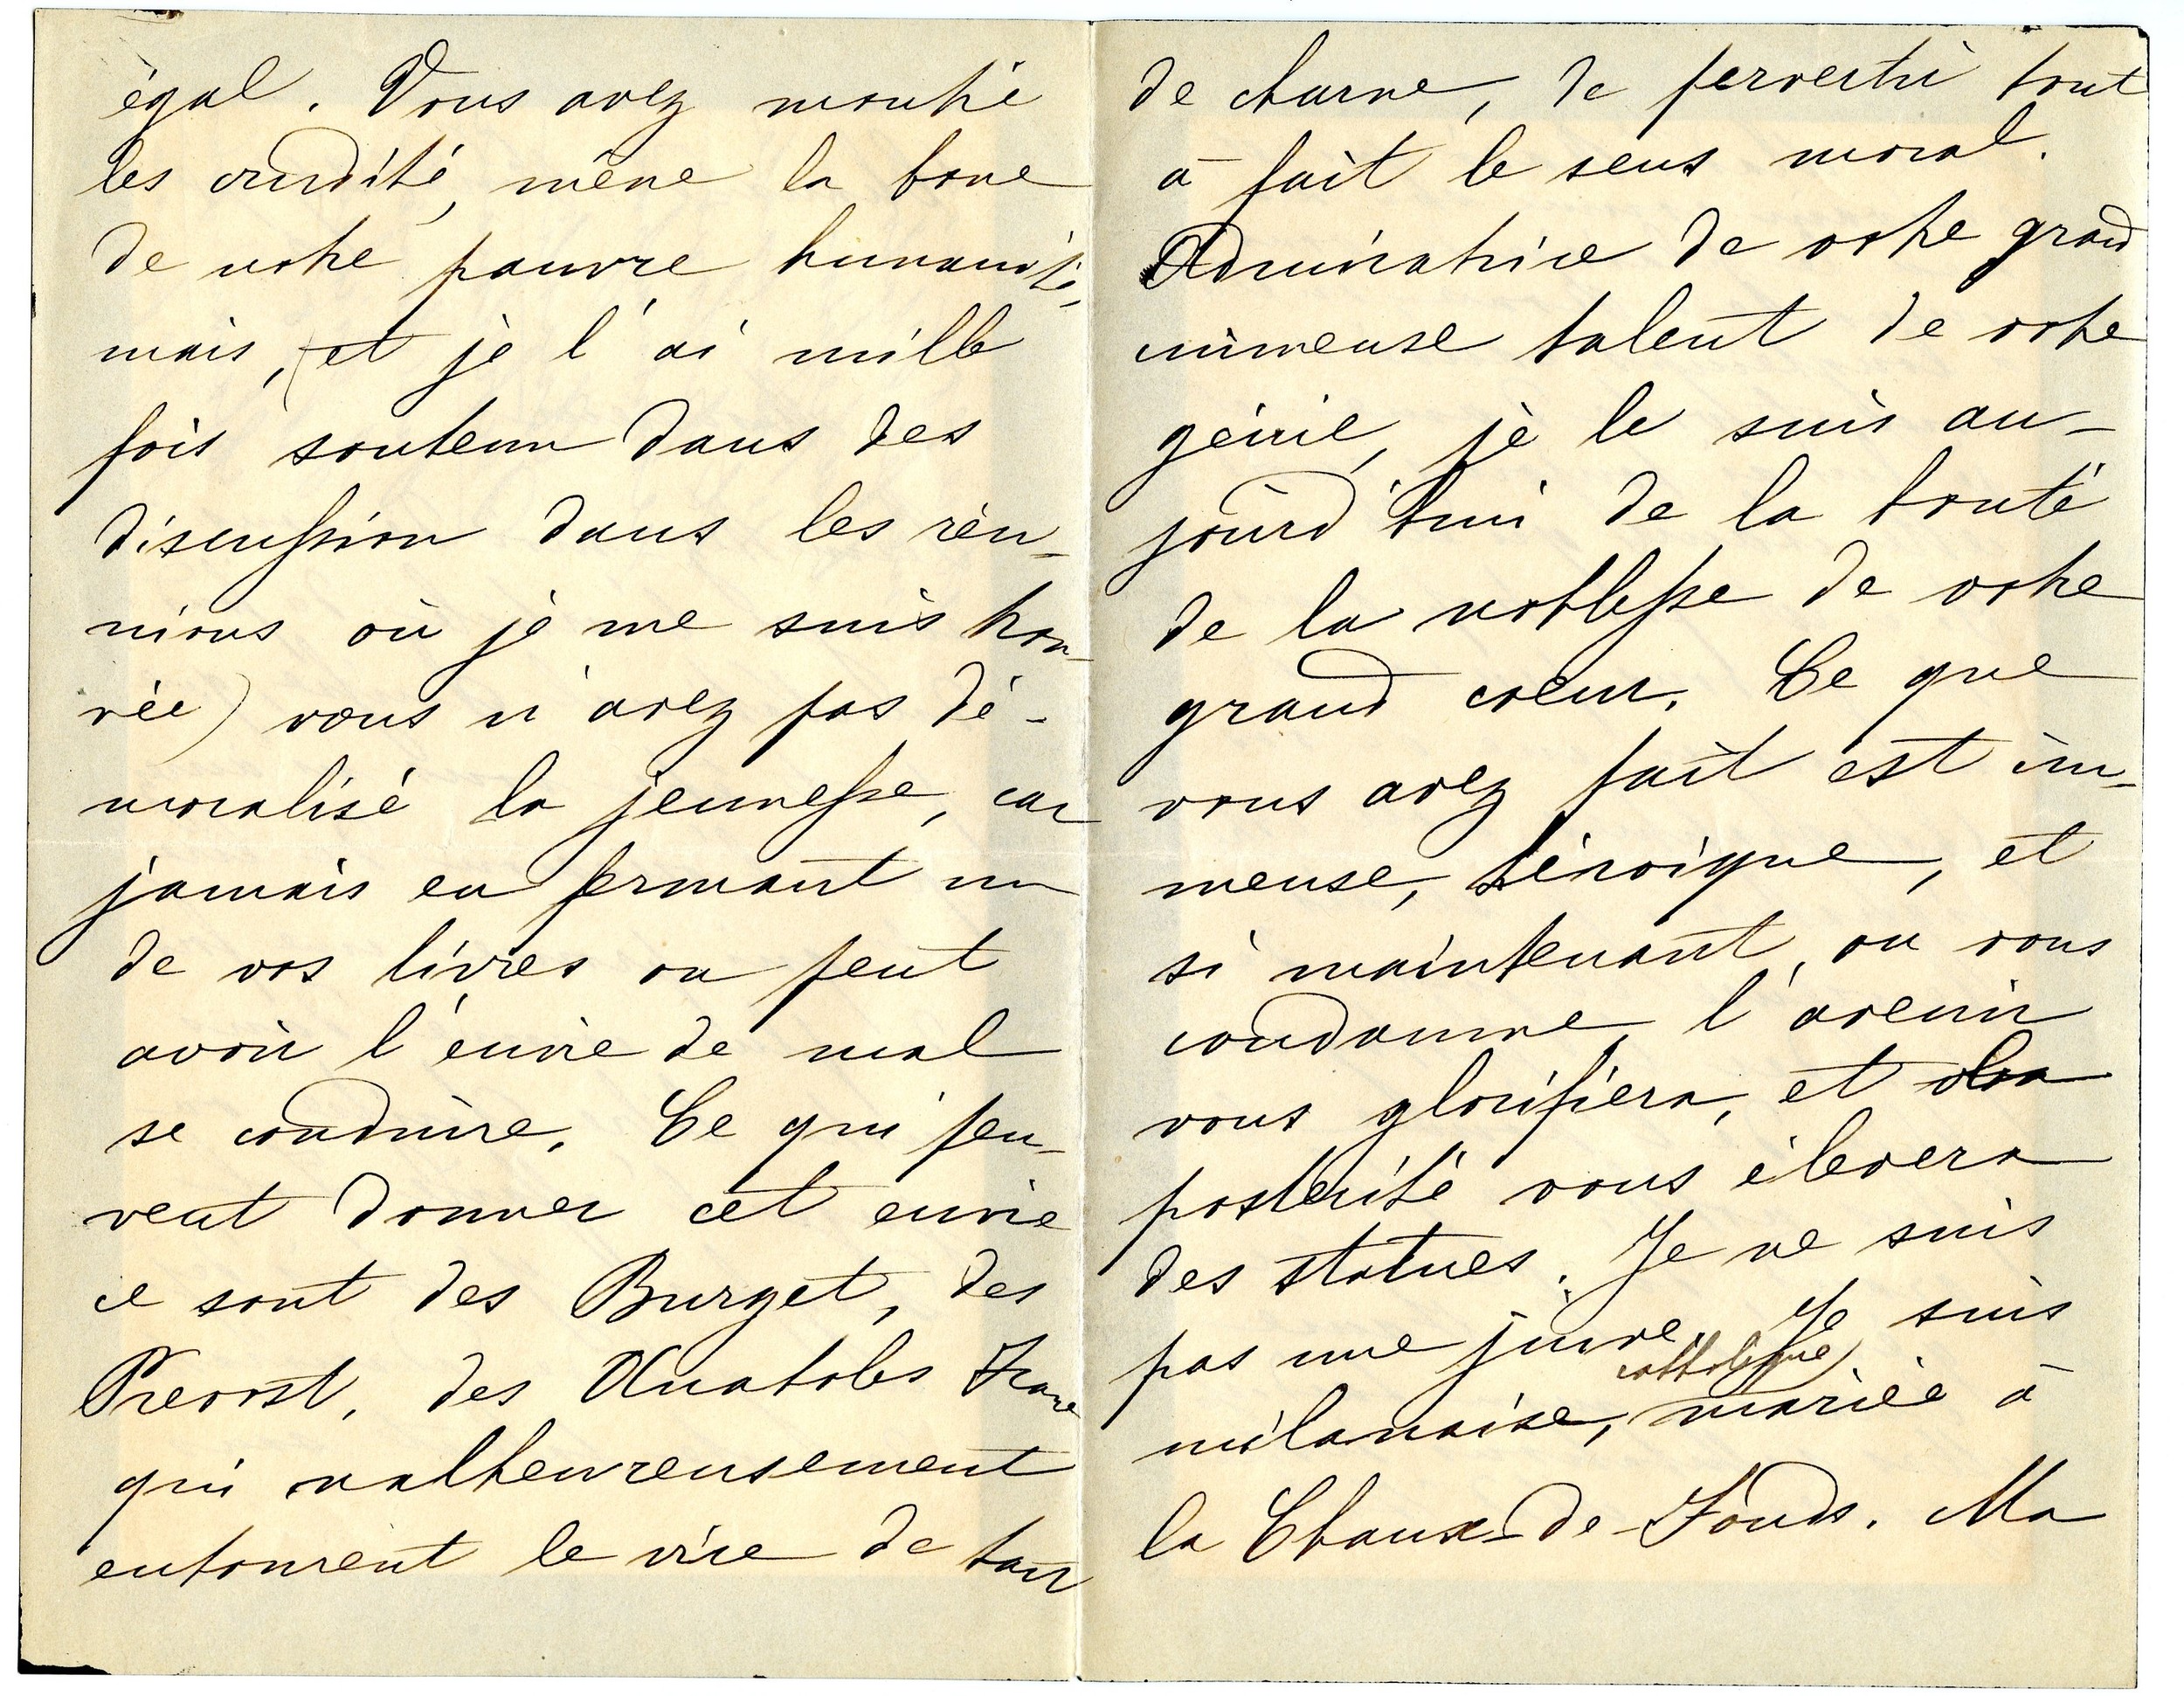 égal. Vous avez montré
les crudité, même la boue
de notre pauvre humanité,
mais, (et je l'ai mille
fois soutenu dans des
discussion dans les réu-
nions où je me suis trou-
vée) vous n'avez pas dé-
moralisé la jeunesse, car
jamais en fermant un
de vos livres on peut
avoir l'envie de mal
se conduire. Ce qui peu-
vent donner cet envie
ce sont des Burget, des
Prevost, des Anatoles France
qui malheureusement
entourent le vice de tant
de charme, de pervertir tout
à fait le sens moral.
Admiratrice de votre grand
immense talent de votre
génie, je le suis au-
jourd'hui de la bonté
de la noblesse de votre
grand coeur. Ce que
vous avez fait est im-
mense, héroique, et
si maintenant, on vous
condamne, l'avenir
vous glorifiera, et la
posterité vous élevera
des statues. Je ne suis
pas une juive. Je suis
milanaise, catholique, mariée à
la Chaux-de-Fonds. Ma